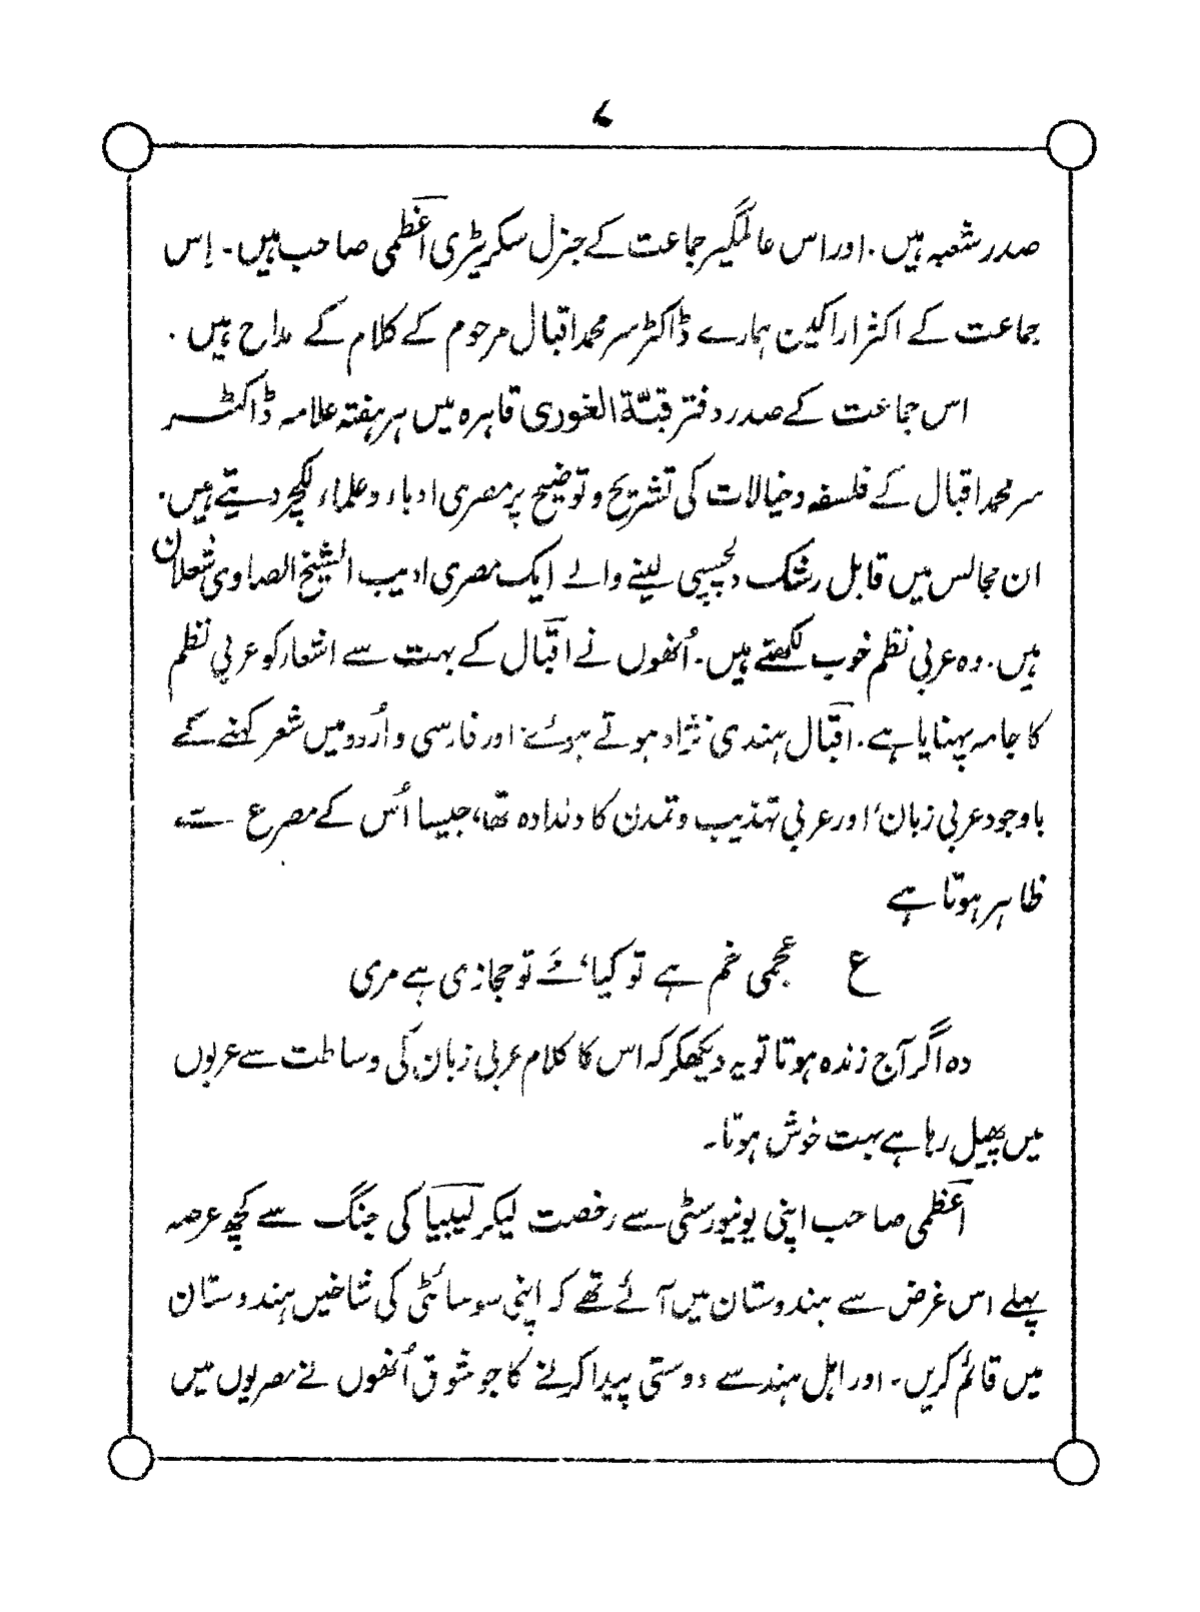 ۷
صدر شعبہ ہیں۔ اور اس عالمگیر جماعت کے جنرل سکریٹری اعظمی صاحب ہیں۔ اِس
جماعت کے اکثر اراکین ہمارے ڈاکٹر سر محمد اقبال مرحوم کے کلام کے مداح ہیں۔
اس جماعت کے صدر دفتر قبّۃ الغوری قاہرہ میں ہر ہفتہ علامہ ڈاکٹر
سر محمد اقبال کے فلسفہ و خیالات کی تشریح و توضیح پر مصری ادباء و علماء لکچر دیتے ہیں۔
ان مجالس میں قابل رشک دلچسپی لینے والے ایک مصری ادیب الشیخ الصاوی شعلان
ہیں۔ وہ عربی نظم خوب لکھتے ہیں۔ اُنھوں نے اقبال کے بہت سے اشعار کو عربی نظم
کا جامہ پہنایا ہے۔ اقبال ہندی نژاد ہوتے ہوئے اور فارسی و اُردو میں شعر کہنے کے
باوجود عربی زبان' اور عربی تہذیب و تمدن کا دلدادہ تھا، جیسا اُس کے مصرع سے
ظاہر ہوتا ہے
ع عجمی خم ہے تو کیا، مَے تو حجازی ہے مری
وہ اگر آج زندہ ہوتا تو یہ دیکھکر کہ اس کا کلام عربی زبان کی وساطت سے عربوں
میں پھیل رہا ہے بہت خوش ہوتا۔
اعظمی صاحب اپنی یونیورسٹی سے رخصت لیکر لیبیا کی جنگ سے کچھ عرصہ
پہلے اس غرض سے ہندوستان میں آئے تھے کہ اپنی سوسائٹی کی شاخیں ہندوستان
میں قائم کریں۔ اور اہل ہند سے دوستی پیدا کرنے کا جو شوق اُنھوں نے مصریوں میں